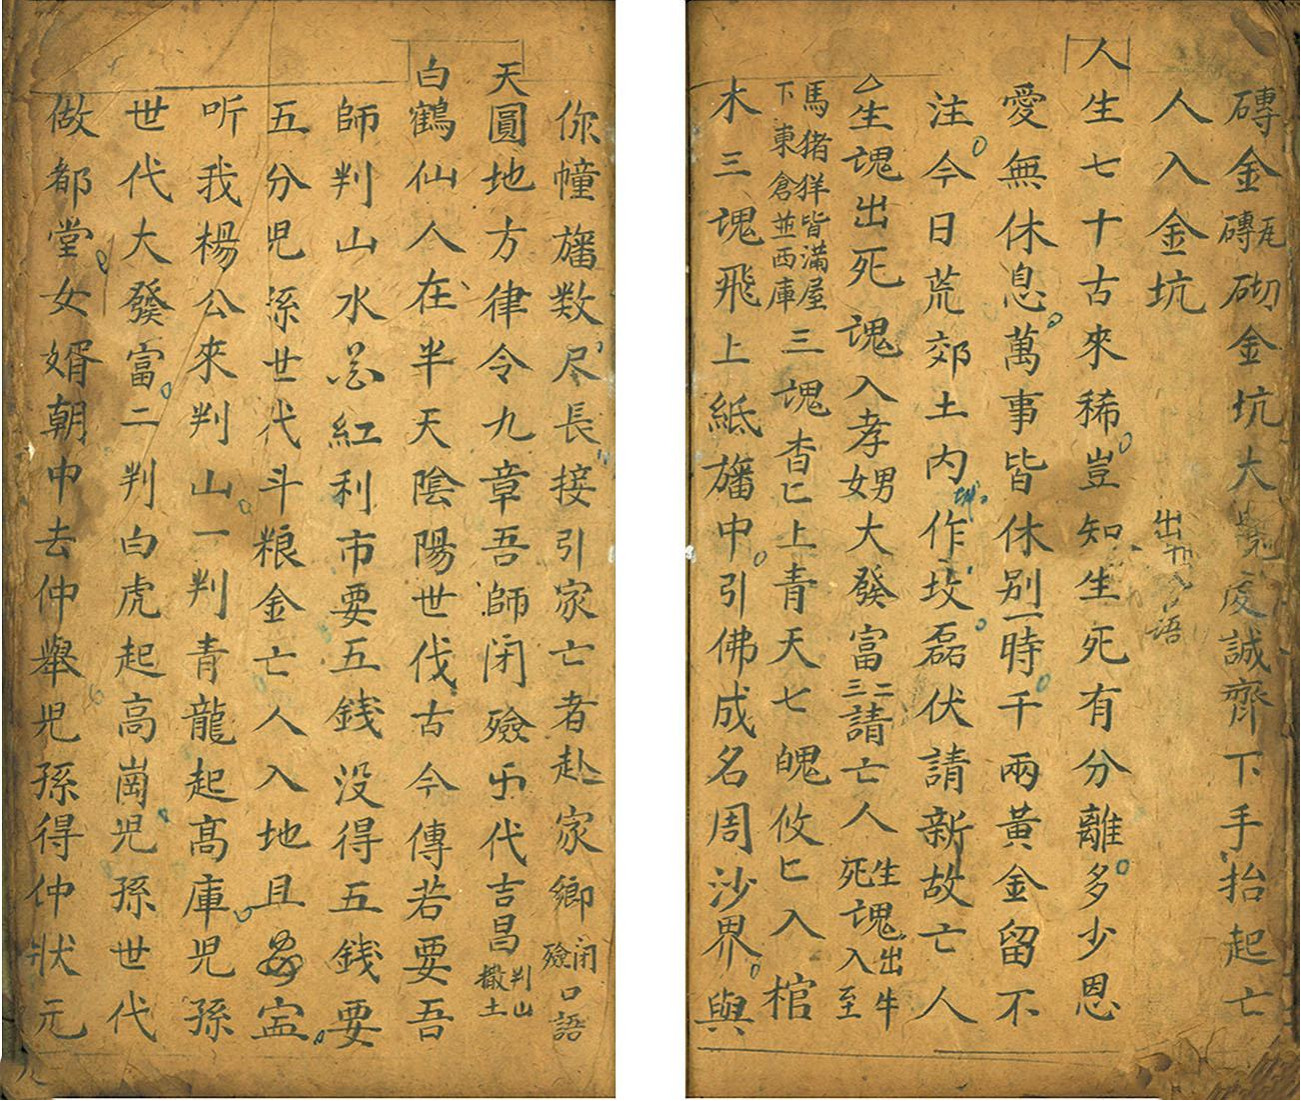 磚金磚瓦砌金坑大覺虔誠齊下手抬起亡
人人入金坑
出語
人生七十古來稀豈知生死有分離多少恩
愛無休息萬事皆休别一時千兩黃金留不
注今日荒郊土內作坟磊伏請新故亡人
生魂出死魂入孝男女大發富二三請亡人生魂出死魂入至牛
馬猪羊皆滿屋下東倉並西庫三魂杳匕上青天七魄攸匕入棺
木三魂飛上紙旛中引佛成名周沙界與
你幢旛数尽長接引家亡者赴家鄉闭殮口語
天圓地方律令九章吾師闭殮卐代吉昌判山撒土
白鶴仙人在半天陰陽世伐古今傳若要吾
師判山水紅利市要五錢没得五錢要
五分児孫世代斗粮金亡人入地且安寍
听我楊公來判山一判青龍起高庫児孫
世代大發富二判白虎起高崗児孫世代
做都堂女婿朝中去仲舉児孫得仲狀元